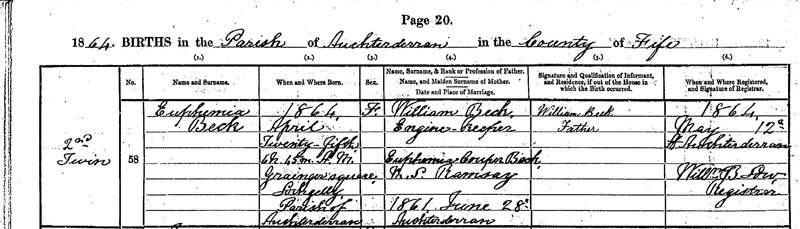 Page 20.
1864. BIRTHS in the Parish of Auchterderran in the County of Fife
(1.) (2.) (3.) (4.) (5.) (6.)
No. Name and Surname. When and Where Born. Sex. Name, Surname, & Rank or Profession of Father. Name, and Maiden Surname of Mother. Date and Place of Marriage. Signature and Qualification of Informant, and Residence, if out of the House in which the Birth occurred. When and Where Registered, and Signature of Registrar.
2nd
Twin
58
Euphemia
Beck
1864,
April
Twenty-Fifth
6h. 45m. A.M.
Grainger square,
Lochgelly
Parish of
Auchterderran
F.
William Beck,
Engine-keeper
Euphemia Couper Beck,
M.S. Ramsay
1861, June 28th
Auchterderran
William Beck
Father
1864,
May 12th
At Auchterderran
Willm B. Dow
Registrar